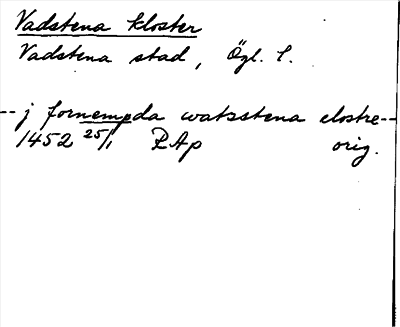 Vadstena kloster
Vadstena stad, Ögl. l.
-- j fornempda watzstena clostre--
1452 25/1 RAp orig.